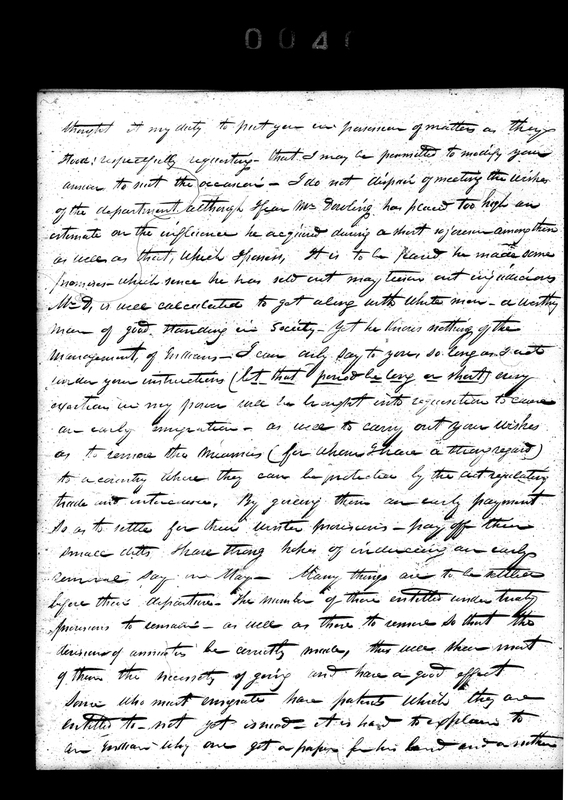 004
thought it my duty to put you in possession of matters as they
stood: respectfully requesting - that I may be permitted to modify your
answer to suit the occasion - I do not dispair of meeting the wishes
of the department although I fear Mr Dowling has placed too high an
estimate on the influence he acquired during a short sojourn among them
as well as that, which I possess, It is to be feared he made some
promises which since he has sold out may turn out injudicious
Mr D, is well calculated to get along with white men - a worthy
man of good standing in Society - yet he knows nothing of the
management, of Indians - I can only say to you, so long as I act
under your instructions (let that period be long or short) every
exertion in my power will be brought into requisition to cause
an early emigration - as well to carry out your wishes
as to remove the Miamies (for whom I have a strong regard)
to a country where they can be protected by the act regulating
trade and intercourse. By giving them an early payment
so as to settle for their winter provisions - pay off their
small debts, I have strong hopes of inducing an early
removal say in May - Many things are to be settled
before their departure - The number of those entitled under treaty
provisions to remain - as well as those to remove so that the
division of annuities be correctly made, this will shew most
of them the necessity of going and have a good effect
Some who must emigrate have patents which they are
entitled to - not yet issued - it is hard to explain to
an Indian why one get a paper for his land and another